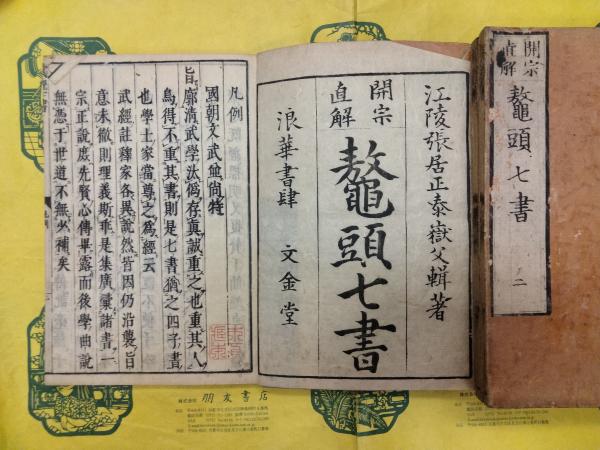 開宗
直解
鼇頭七書
二
江陵張居正泰嶽父輯著
開宗
直解
鼇頭七書
浪華書肆 文金堂
凡例
國朝文武並尚特
旨廓清武學汰僞存真誠重之也重其人
烏得不重其書則是七書猶之四子書
也學士家當尊之爲經云
武經註釋家各異說然皆因仍沿襲旨
意未徹則理義斯乖是集廣彙諸書一
宗正說庶先賢心傳畢露而後學曲說
無憑于世道不無少補矣
株式会社 朋友書店